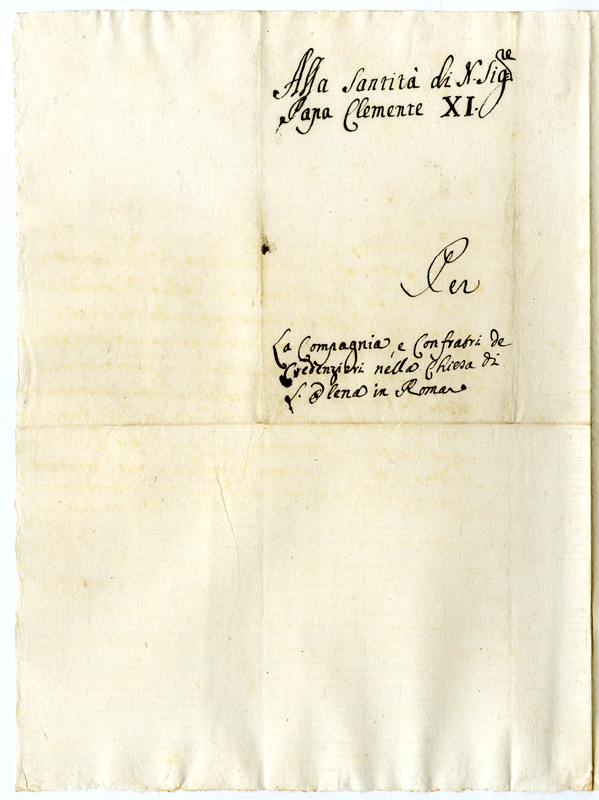 Alla Santità di N. Sig.re
Papa Clemente XI.
Per
La Compagnia e Confratri de
Credenzieri nella Chiesa di
S. Elena in Roma